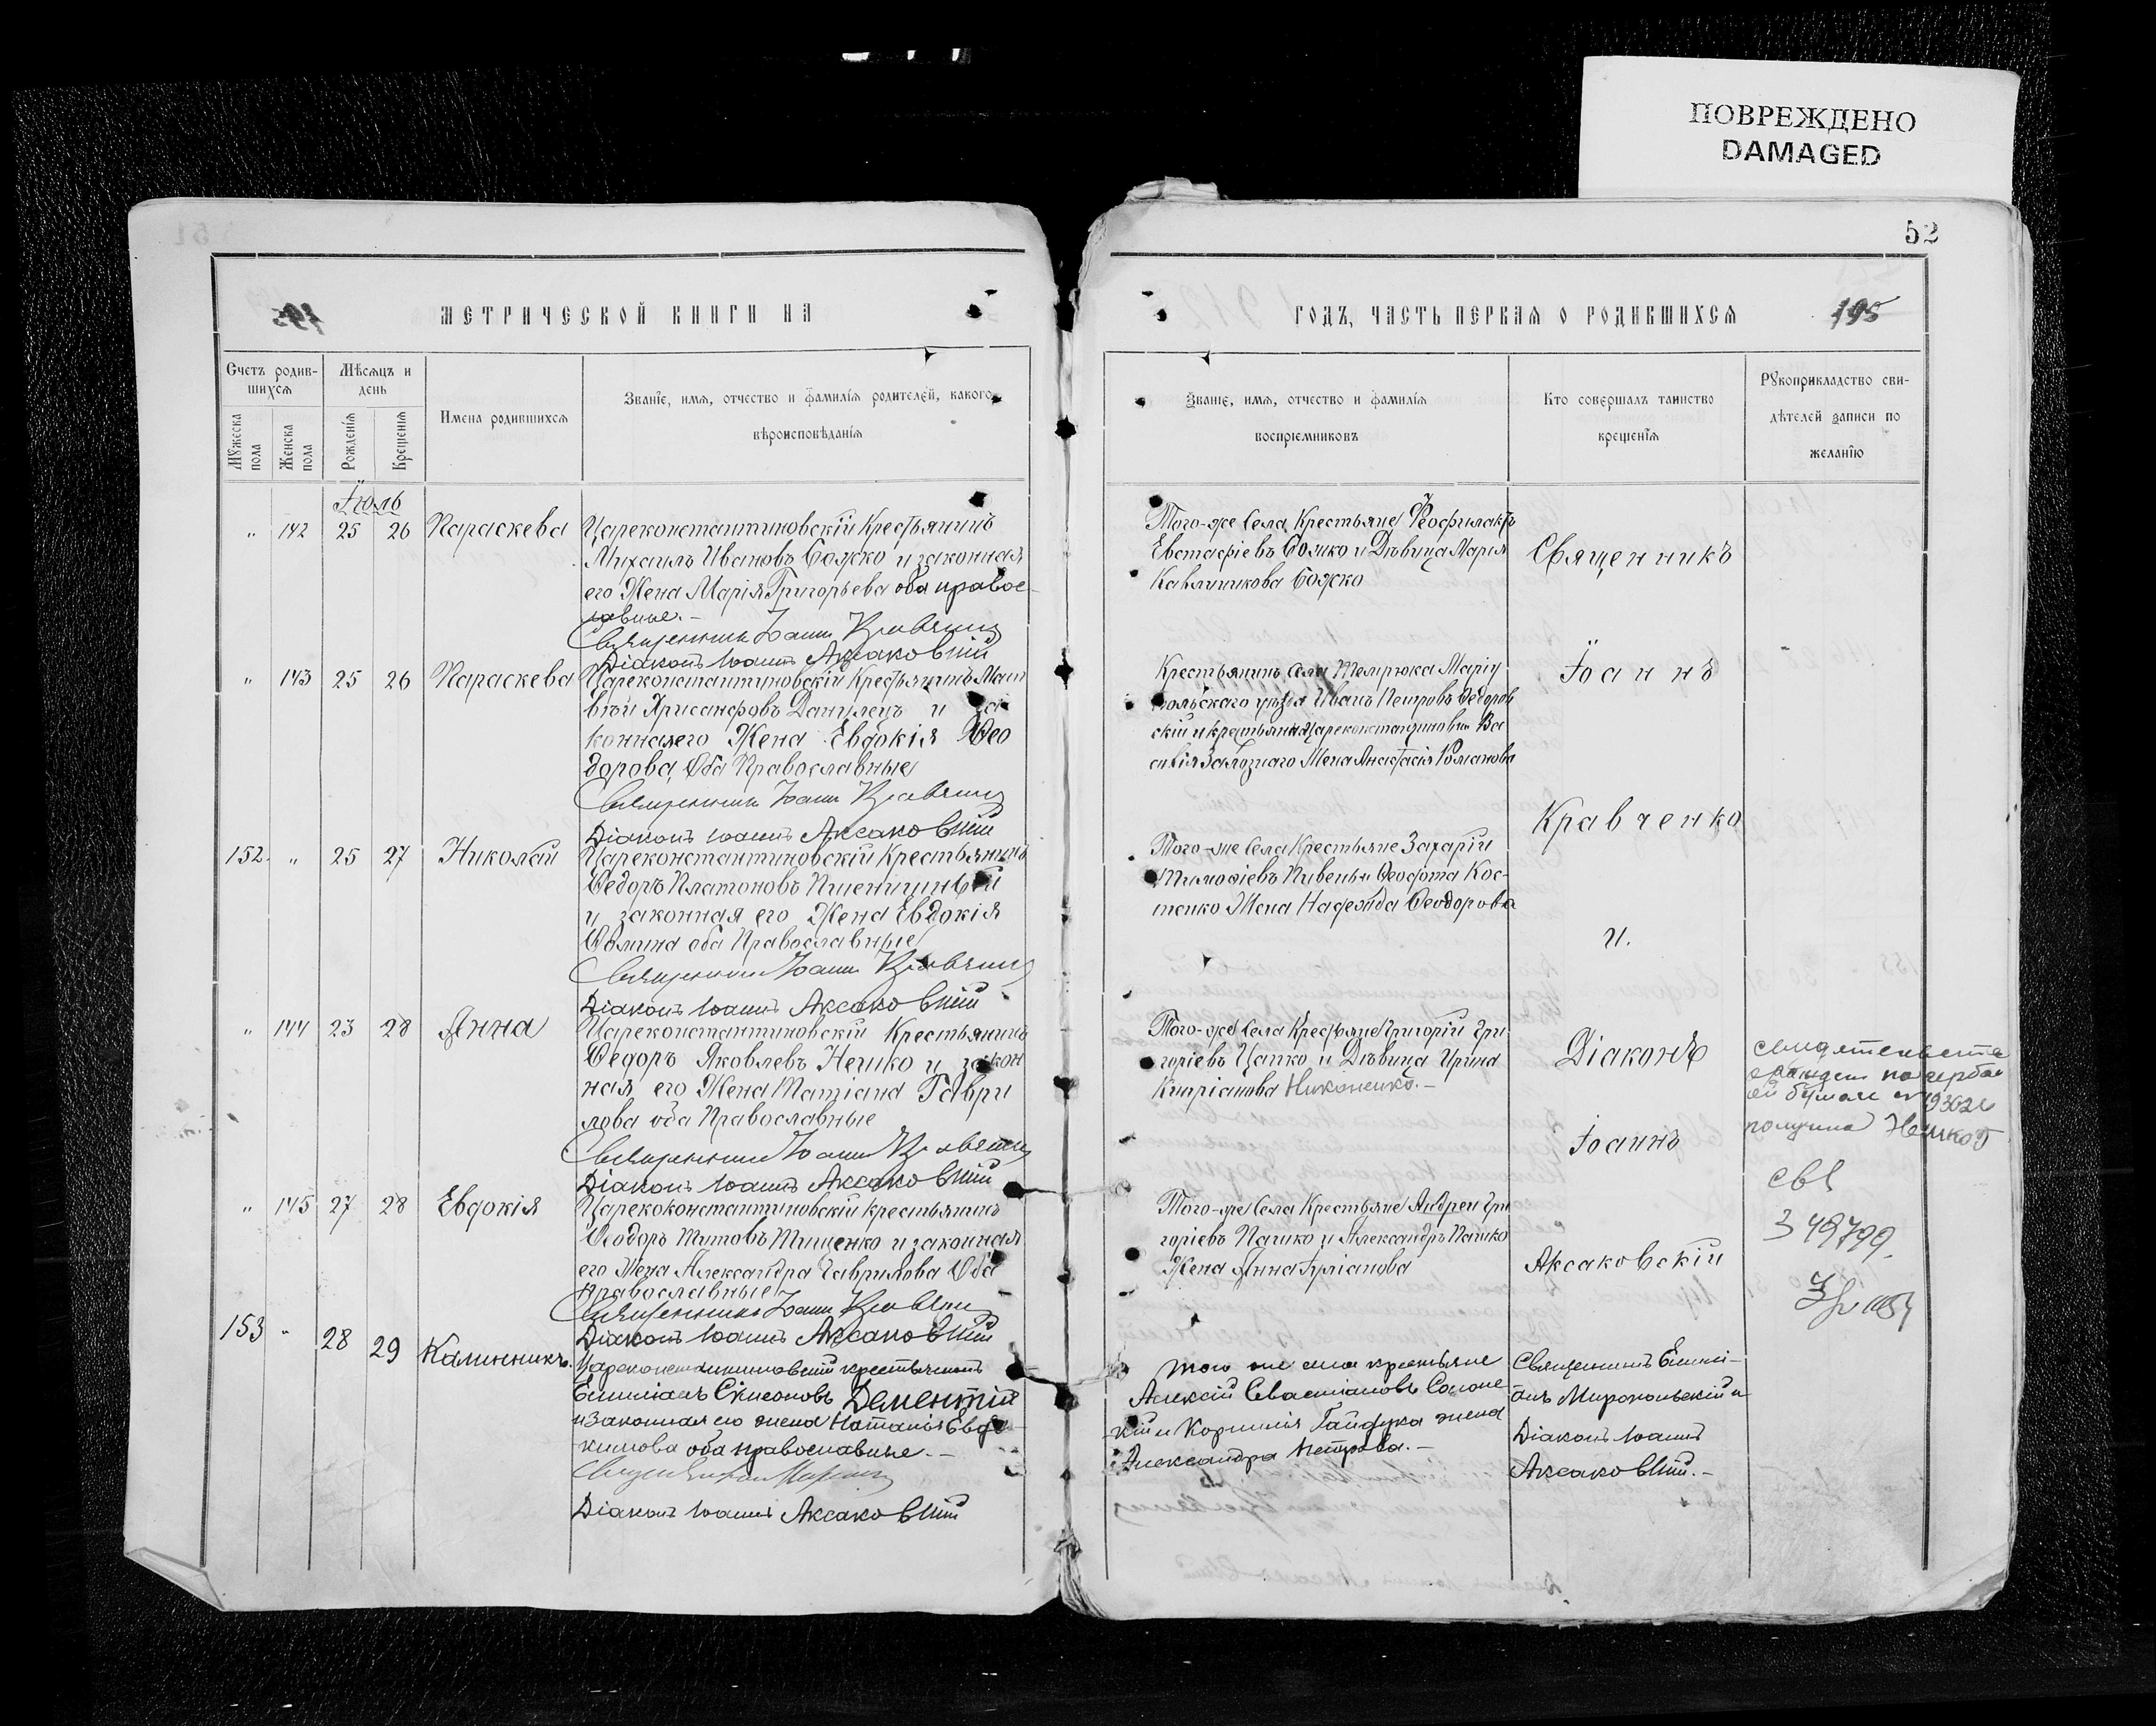 ПОВРЕЖДЕНО
DAMAGED
52
195
МЕТРИЧЕСКОЙ КНИГИ НА
ГОДЪ, ЧАСТЬ ПЕРВАЯ О РОДИВШИХСЯ
195
Счетъ родив-
шихся
Мужеска пола
Женска пола
Мѣсяцъ и
день
Рожденія
Крещенія
Имена родившихся
Званіе, имя, отчество и фамилія родителей, какого
вѣроисповѣданія
Званіе, имя, отчество и фамилія
воспріемниковъ
Кто совершалъ таинство
крещенія
Рукоприкладство сви-
дѣтелей записи по
желанію
Іюль
" 142 25 26 Параскева
Цареконстантиновскій Крестьянинъ
Михаилъ Ивановъ Божко и законная
его Жена Марія Григорьева оба правос-
лавные.-
Священникъ Іоаннъ Кравченко
Діаконъ Іоаннъ Аксаковскій
Того-же Села Крестьяне Феофилактъ
Евстафіевъ Божко и Дѣвица Марія
Каллиникова Божко
Священникъ
" 143 25 26 Параскева
Цареконстантиновскій Крестьянинъ Мат
вѣй Хрисанфовъ Данилецъ и за
конная его Жена Евдокія Ѳео
дорова, Оба Православные
Священникъ Іоаннъ Кравченко
Діаконъ Іоаннъ Аксаковскій
Крестьянинъ Села Темрюка Маріу
польскаго уѣзда Иванъ Петровъ Федоров
скій и крестьянина Цареконстантиновки Ва
силія Залознаго Жена Анастасія Романова
Іоаннъ
Кравченко
152. " 25 27 Николай
Цареконстантиновскій Крестьянинъ
Ѳедоръ Платоновъ Пшеничный
и законная его Жена Евдокія
Ѳомина оба Православные
Священникъ Іоаннъ Кравченко
Діаконъ Іоаннъ Аксаковскій
Того-же Села Крестьяне Захарій
Тимофіевъ Пивень и Ѳеофота Кос-
тенко Жена Надежда Ѳеодорова
и.
" 144 23 28 Анна
Цареконстантиновскій Крестьянинъ
Ѳедоръ Яковлевъ Нешко и закон
ная его Жена Татіана Гаври
лова оба Православные
Священникъ Іоаннъ Кравченко
Діаконъ Іоаннъ Аксаковскій
Того-же Села Крестьяне Григорій Гри-
горіевъ Цапко и Дѣвица Ирина
Кипріанова Никоненко.-
Діаконъ
Іоаннъ
получила
свд
349799
" 145 27 28 Евдокія
Царекоконстантиновскій крестьянинъ
Ѳеодоръ Титовъ Тищенко и законная
его Жена Александра Гаврилова Оба
православные
Священникъ Іоаннъ Кравченко
Діаконъ Іоаннъ Аксаковскій
Того-же Села Крестьяне Андрей Гри
горіевъ Пашко и Александръ Пашко
Жена Анна Іуліанова
Аксаковскій
153 " 28 29 Каллиникъ.
Цареконстантиновскій крестьянинъ
Емиліанъ Симеоновъ Дементій
и законная его жена Наталія Евдо-
кимова оба православные.-
Діаконъ Іоаннъ Аксаковскій
Того же села крестьяне
Алексій Севастіановъ
и Корнилія Гайдука жена
Александра Петрова.-
Священникъ Емилі-
анъ Миропольскій и
Діаконъ Іоаннъ
Аксаковскій.-